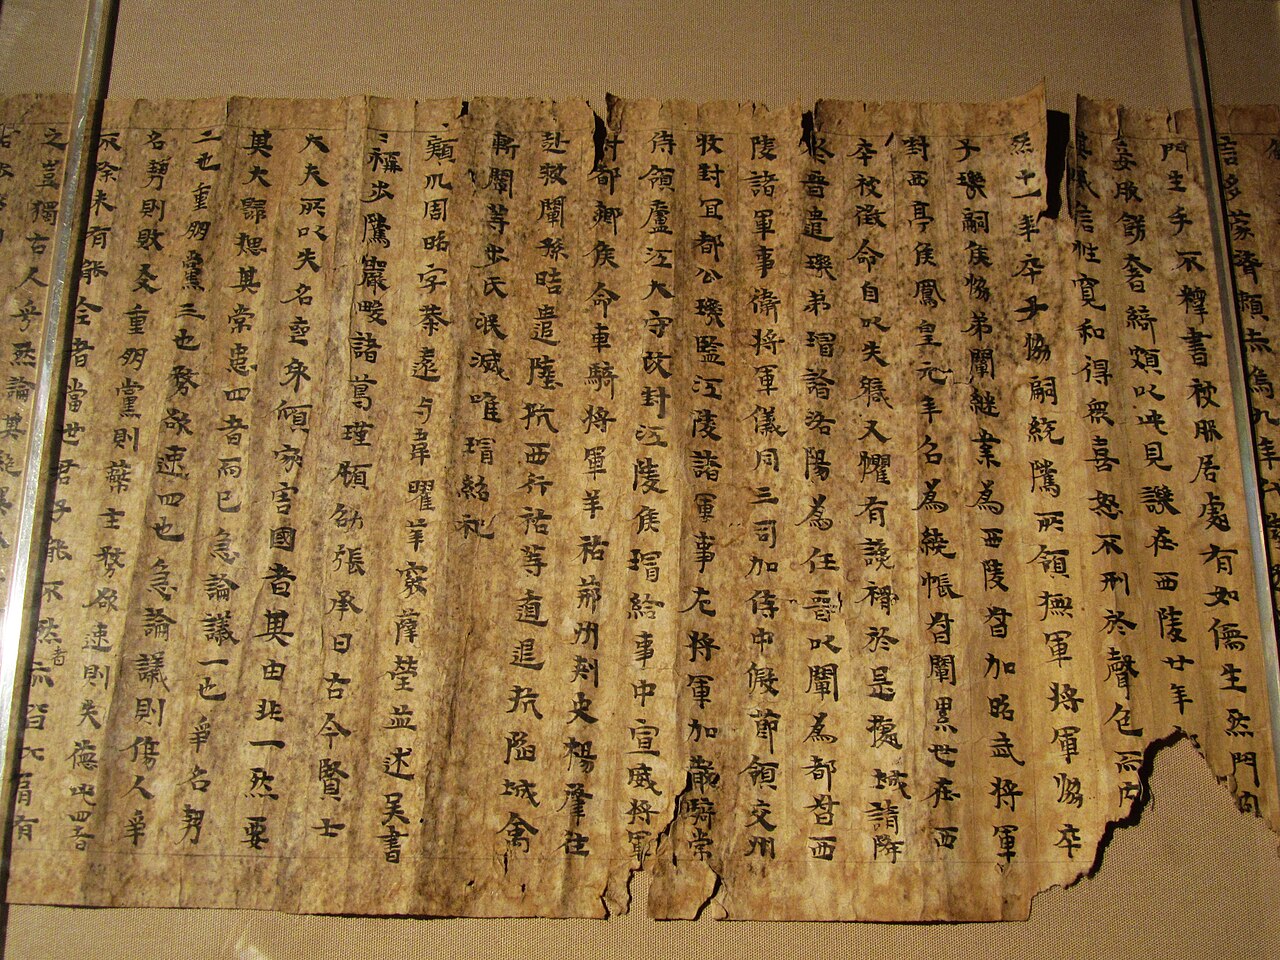 言多蒙濟賴赤烏九年代陸
門生手不釋書被服居處有如儒生然門內
妾服飾奢綺頗以此見譏在西陵廿年
其威信性寬和得衆喜怒不刑於聲色而內
然十一年卒子協嗣統隲所領撫軍將軍協卒
子璣嗣侯協弟闡継業為西陵督加昭武將軍
封西亭侯鳳皇元年召為繞帳督闡累世在西
卒被徵命自以失軄又懼有讒禍於是㩀城請降
於晉遣璣弟瑁詣洛陽為任晉以闡為都督西
陵諸軍事衛將軍儀同三司加侍中假節領交州
牧封宜都公璣監江陵諸軍事左將軍加散騎常
侍領盧江大守改封江陵侯瑁給事中宣威將軍
封都鄉侯命車騎將軍羊祜荊州刾史楊肇往
赴救闡孫晧遣陸抗西行祜等遁退抗陷城禽
斬闡等步氏泯滅唯瑁紹祀
潁川周昭字恭遠与韋曜羊薛瑩並述吳書
稱步隲嚴畯諸葛瑾顧劭張承曰古今賢士
大夫所以失名喪身傾家害國者其由非一然要
其大歸揔其常患四者而已急論議一也爭名勢
二也重朋黨三也務欲速四也急論議則傷人爭
名勢則敗友重朋黨則蔽主務欲速則失德此四者
不除未有能全者當世君子能不然者亦比有
之豈獨古人乎然論其絕異